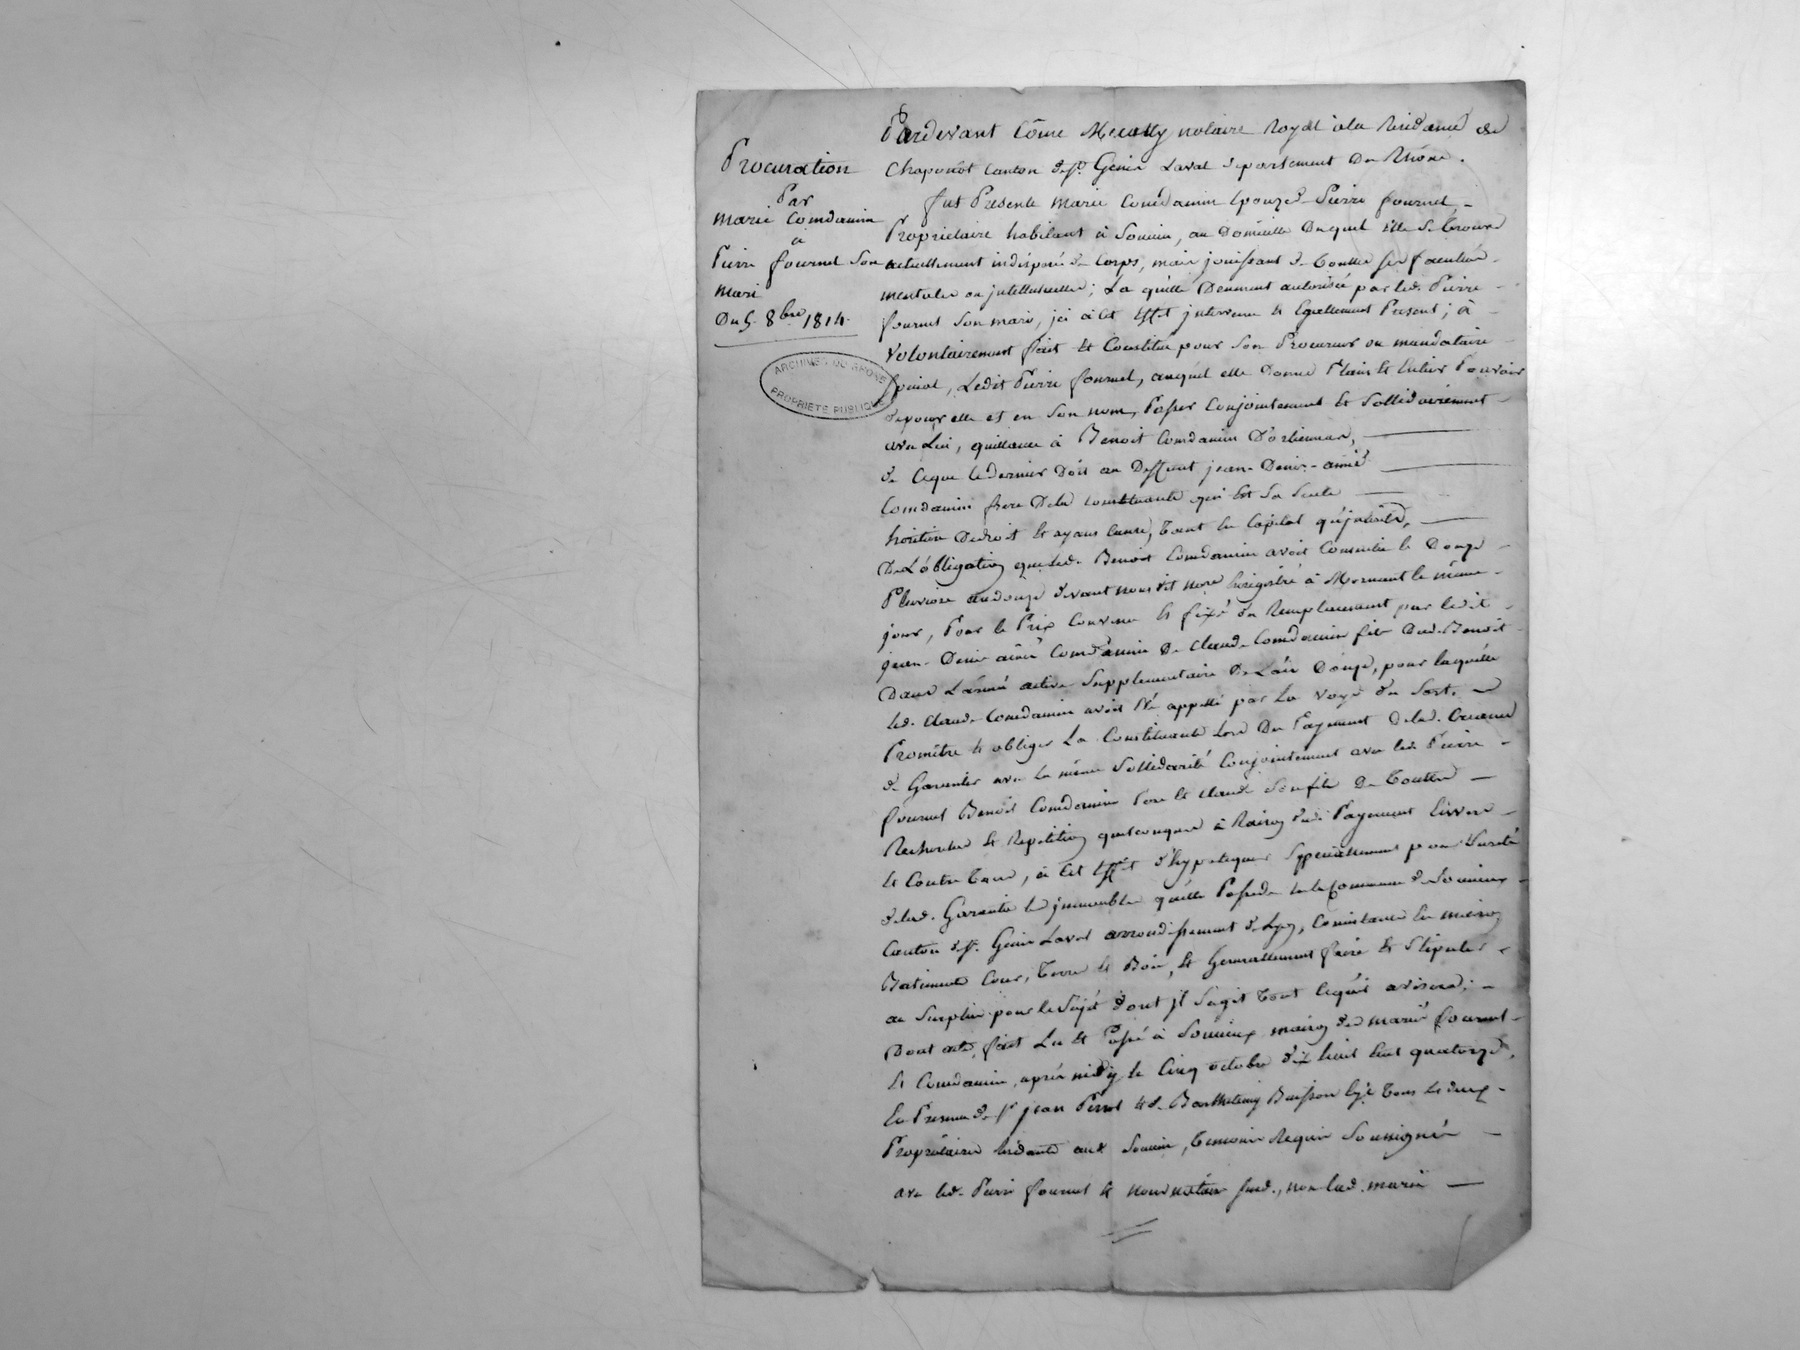 Procuration
Par
marie Comdamin
à
Pierre fournel son
mari
Du 5. 8bre 1814.
ARCHIVES DU RHONE
PROPRIETE PUBLIQUE
Pardevant Côme notaire Royal à la Residance de
Chaponôt canton de st. Genis Laval departement Du Rhône.
fut Presente marie Comdamin Epouze Pierre fournel
Proprietaire habitant à Soucieu, au Domicille Duquel Elle se trouve
actuellement indisposé de Corps, mais jouissant de toutes ses facultés
mentales ou jntellectuelles; La quelle Deument autorisée par led. Pierre
fournel son mari, jci à cet Effet jntervenu et Egallement Present; à
volontairement fait et Constitué pour son Procureur ou mandataire
special, Ledit Pierre fournel, auquel elle Donne Plain et Entier Pouvoir
de pour elle et en son nom, Passer Conjointement et Sollidairement
avec Lui, quittance à Benoit Comdamin D'orlienas,
de Ceque Ce dernier Doit au Deffunt jean-Denis-aimé
Comdamin frere De la constituante qui Est sa seule
heritiere De droit et ayans cause, tant en Capital qu'jnterêts,
De L'obligation que led. Benoit Comdamin avoit Consentie le Douze
Pluviose an douze devant nous dit nore Enregistré à Mornant le même
jour, Pour le Prix Convenu et fixé du Remplacement par ledit
jean-Denis aimé Comdamin De Claude Comdamin fils Dud. Benoit
Dans L'armé active Supplementaire De L'an Douze, pour laquelle
led. Claude Comdamin avoit Eté appellé par La voye du Sort.
Promêtre et obliger La Constituante Lors Du Payement De lad. Creance
de Garentir avec la même Sollidarité Conjointement avec led. Pierre
fournel Benoit Comdamin Pere et Claude Son fils De toutes
Recherches et Repetition quelconques à Raison dud. Payement Envers
et Contre tous, à cet Effet d'hypotequer Sppeciallement pour Sureté
de lad. Garantie les jmmeubles qu'elle Possede en la Commune de Soucieux
Canton de st. Genis Laval arrondissement de Lyon, Consistants En maison
Batiments Cour, Terre et Bois, et Generallement faire et stipuler
au Surplus pour le Sujet dont jl Sagit tout cequ'il avisera;
Dont acte, fait Lu et Passé à Soucieux maison des mariés fournel
et Comdamin, aprés midy le Cinq octobre dix huit Cent quatorze,
En Presence de sr jean et de Barthelemy Buisson tous les deux
Proprietaires Residants aud. Soucieu, temoins Requis Soussignés
avec led. Pierre fournel et nous notaire Susd., non lad. marie